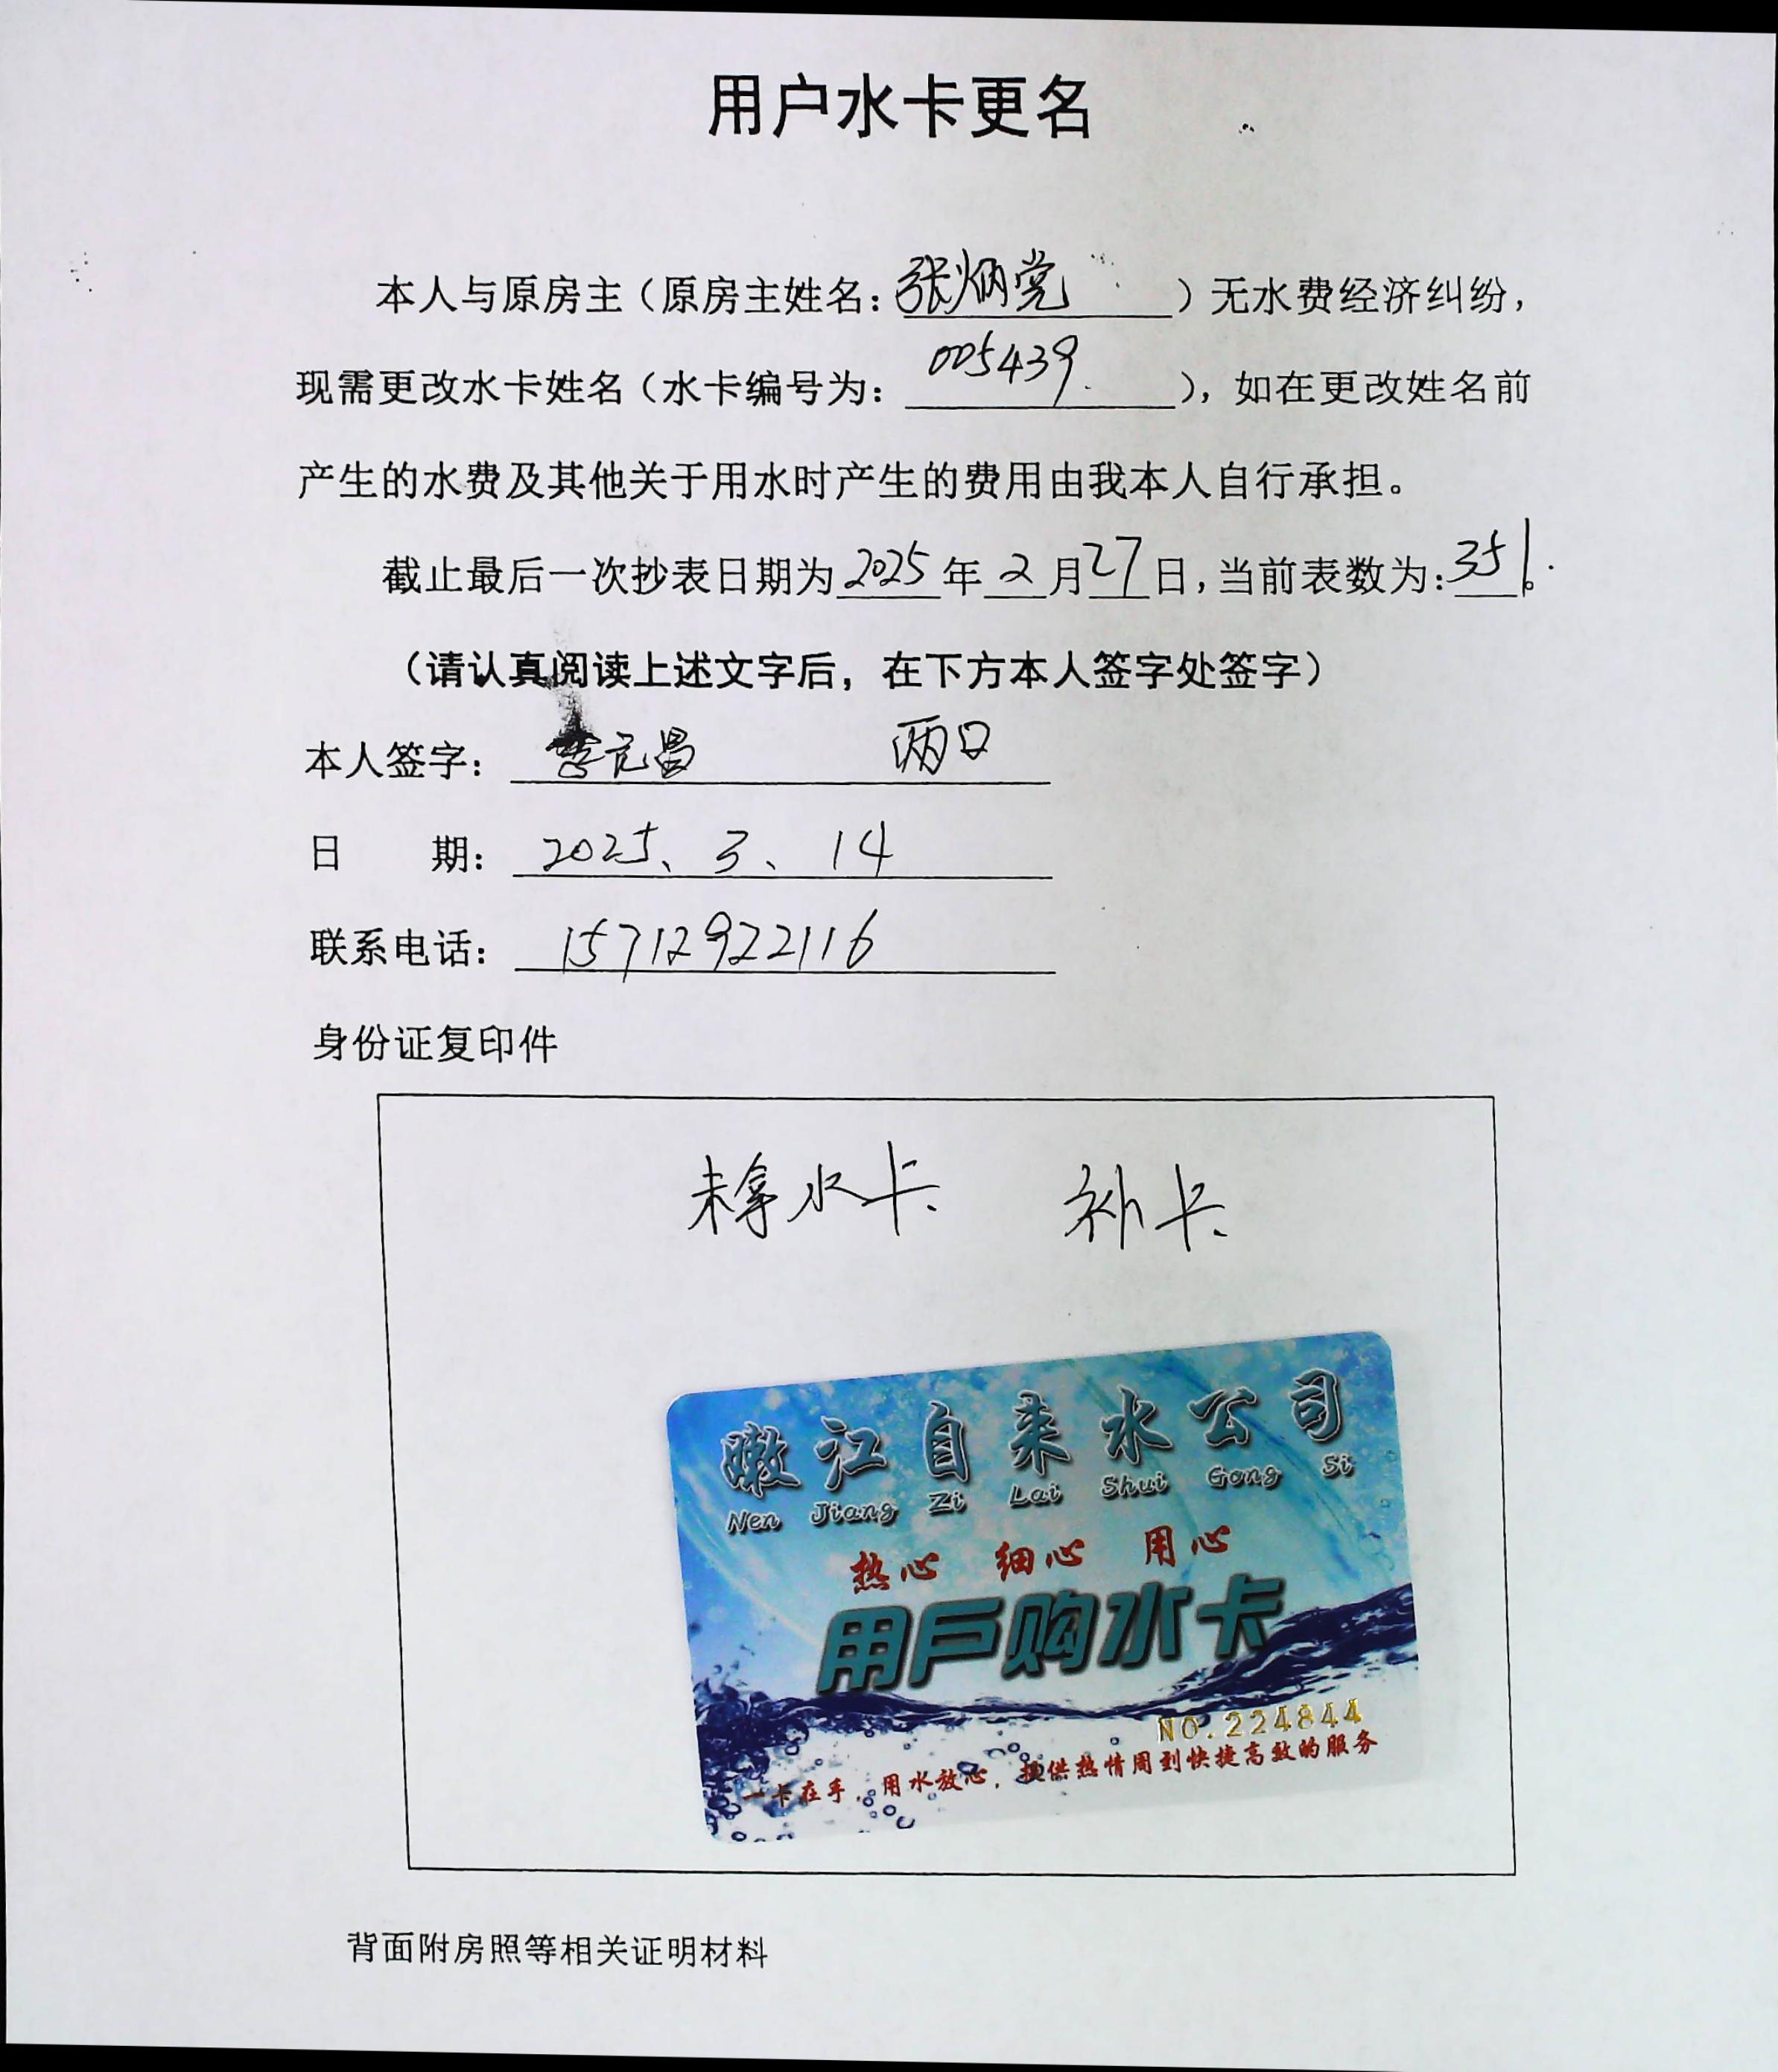 用户水卡更名
本人与原房主（原房主姓名：张炳党）无水费经济纠纷，
现需更改水卡姓名（水卡编号为：005439.），如在更改姓名前
产生的水费及其他关于用水时产生的费用由我本人自行承担。
截止最后一次抄表日期为2025年2月27日，当前表数为：351。
（请认真阅读上述文字后，在下方本人签字处签字）
本人签字：李元昌 两口
日 期：2025、3、14
联系电话：15712922116
身份证复印件
未拿水卡 补卡
嫩江自来水公司
Nen Jiang Zi Lai Shui Gong Si
热心 细心 用心
用户购水卡
NO.224844
一卡在手，用水放心，提供热情周到快捷高效的服务
背面附房照等相关证明材料